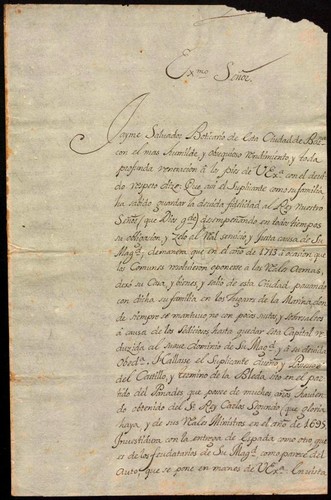 Ex.mo Señor.
Jayme Salvador Boticario de esta Ciudad de Bar.na
con el mas humilde, y obsequioso rendimiento, y toda
profunda veneracion à los pies de V.Ex.a con el devi-
do respeto dize: Que assi el Suplicante como su familia
ha sabido guardar la devida fidelidad al Rey Nuestro
Señor (que Dios g.de) desempeñando en todos tiempos
su obligacion, y zelo al Real servicio y Justa causa de Su
Mag.d; de manera que en el año de 1713 a ocasion, que
los Comunes resolvieron oponerse à las Reales Armas,
dexò su Casa, y bienes, y saliò de esta Ciudad, passando
con dicha su familia en los lugares de la Marina, don-
de siempre se mantuvo, no con pocos sustos, y sobresaltos
à causa de los Sediciosos hasta quedar esta Capital re-
duzida al suave dominio de Su Mag.d, y à su devida
Obed.a. Hallase el Suplicante Dueño, y Posseedor
del Castillo, y termino de la Bleda, sito en el par-
tido del Panades que posee de muchos años, havien-
do obtenido del S.r Rey Carlos Segundo (que gloria
haya, y de sus Reales Ministros en el año de 1695
Investidura con la entrega de Espada como otro que
es de los feudatarios de Su Mag.d, como parece del
Auto, que se pone en manos de V.Ex.a En vista